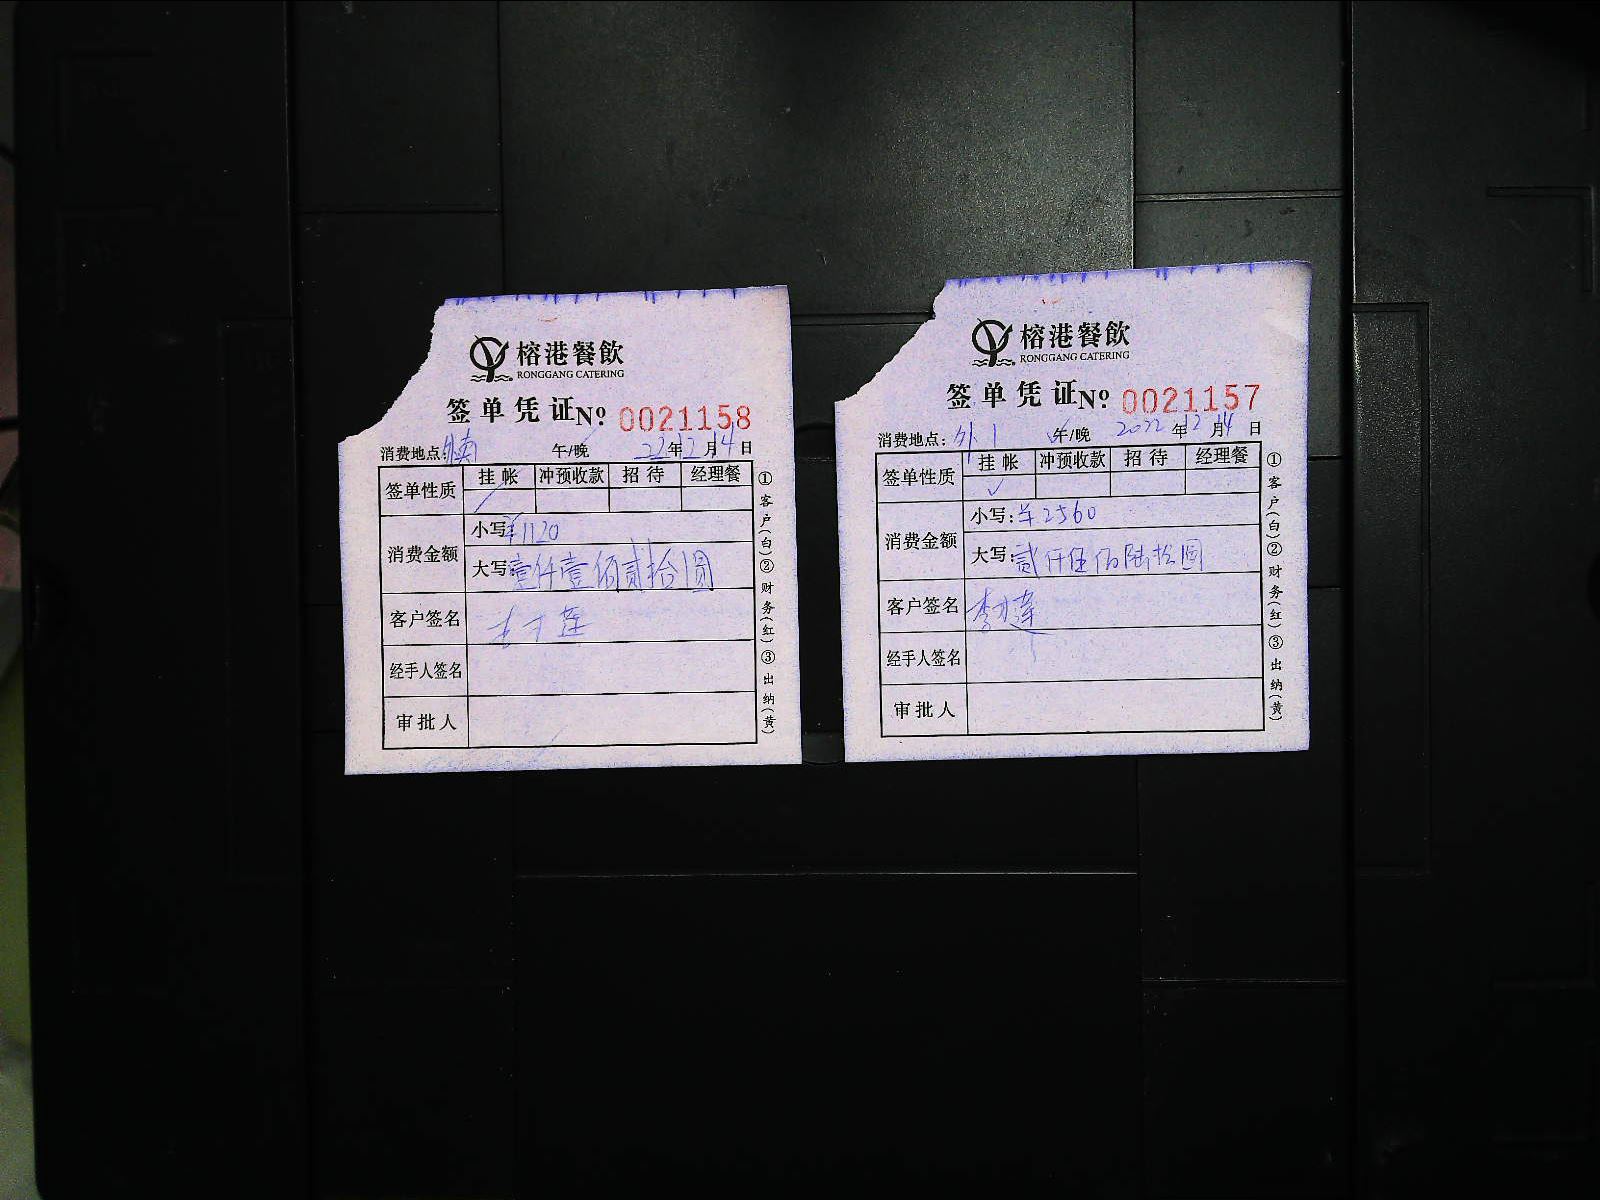 榕港餐飲
RONGGANG CATERING
签单凭证 No 0021158
消费地点: 午/晚 22年12月14日
签单性质 挂帐 冲预收款 招待 经理餐
消费金额 小写:¥1120
大写:壹仟壹佰贰拾圆
客户签名
经手人签名
审批人
①客户(白)②财务(红)③出纳(黄)
榕港餐飲
RONGGANG CATERING
签单凭证 No 0021157
消费地点: 外1 午/晚 2022年12月14日
签单性质 挂帐 冲预收款 招待 经理餐
✓
消费金额 小写:¥2560
大写:贰仟伍佰陆拾圆
客户签名
经手人签名
审批人
①客户(白)②财务(红)③出纳(黄)